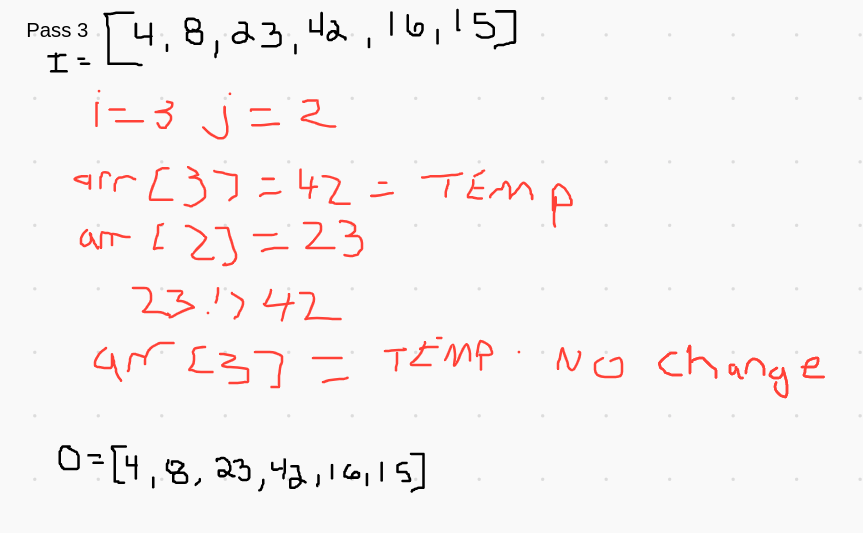 Pass 3
I = [4, 8, 23, 42, 16, 15]
i=3 j=2
arr[3]=42 = TEMP
arr[2]=23
23!>42
arr[3] = TEMP. No change
O=[4, 8, 23, 42, 16, 15]